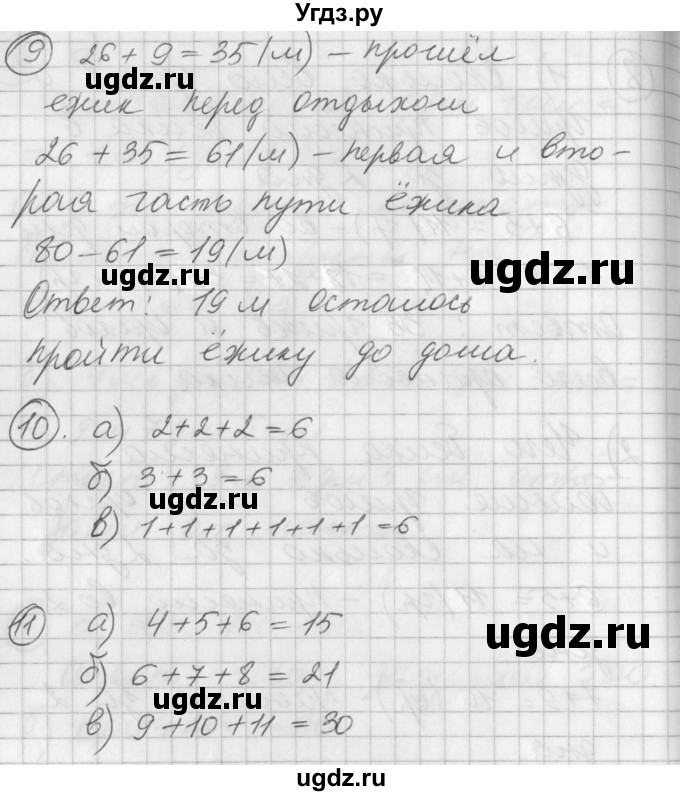 Угдз.ру
9 26 + 9 = 35 (м) – прошёл
ugdz.ru
ёжик перед отдыхом
26 + 35 = 61 (м) – первая и вто-
рая часть пути ёжика
80 – 61 = 19 (м)
ugdz.ru ugdz.ru
Ответ: 19 м осталось
пройти ёжику до дома.
10. а) 2+2+2=6
б) 3+3=6
ugdz.ru ugdz.ru
в) 1+1+1+1+1+1=6
11 а) 4+5+6=15
ugdz.ru
б) 6+7+8=21
ugdz.ru
в) 9+10+11=30
ugdz.ru